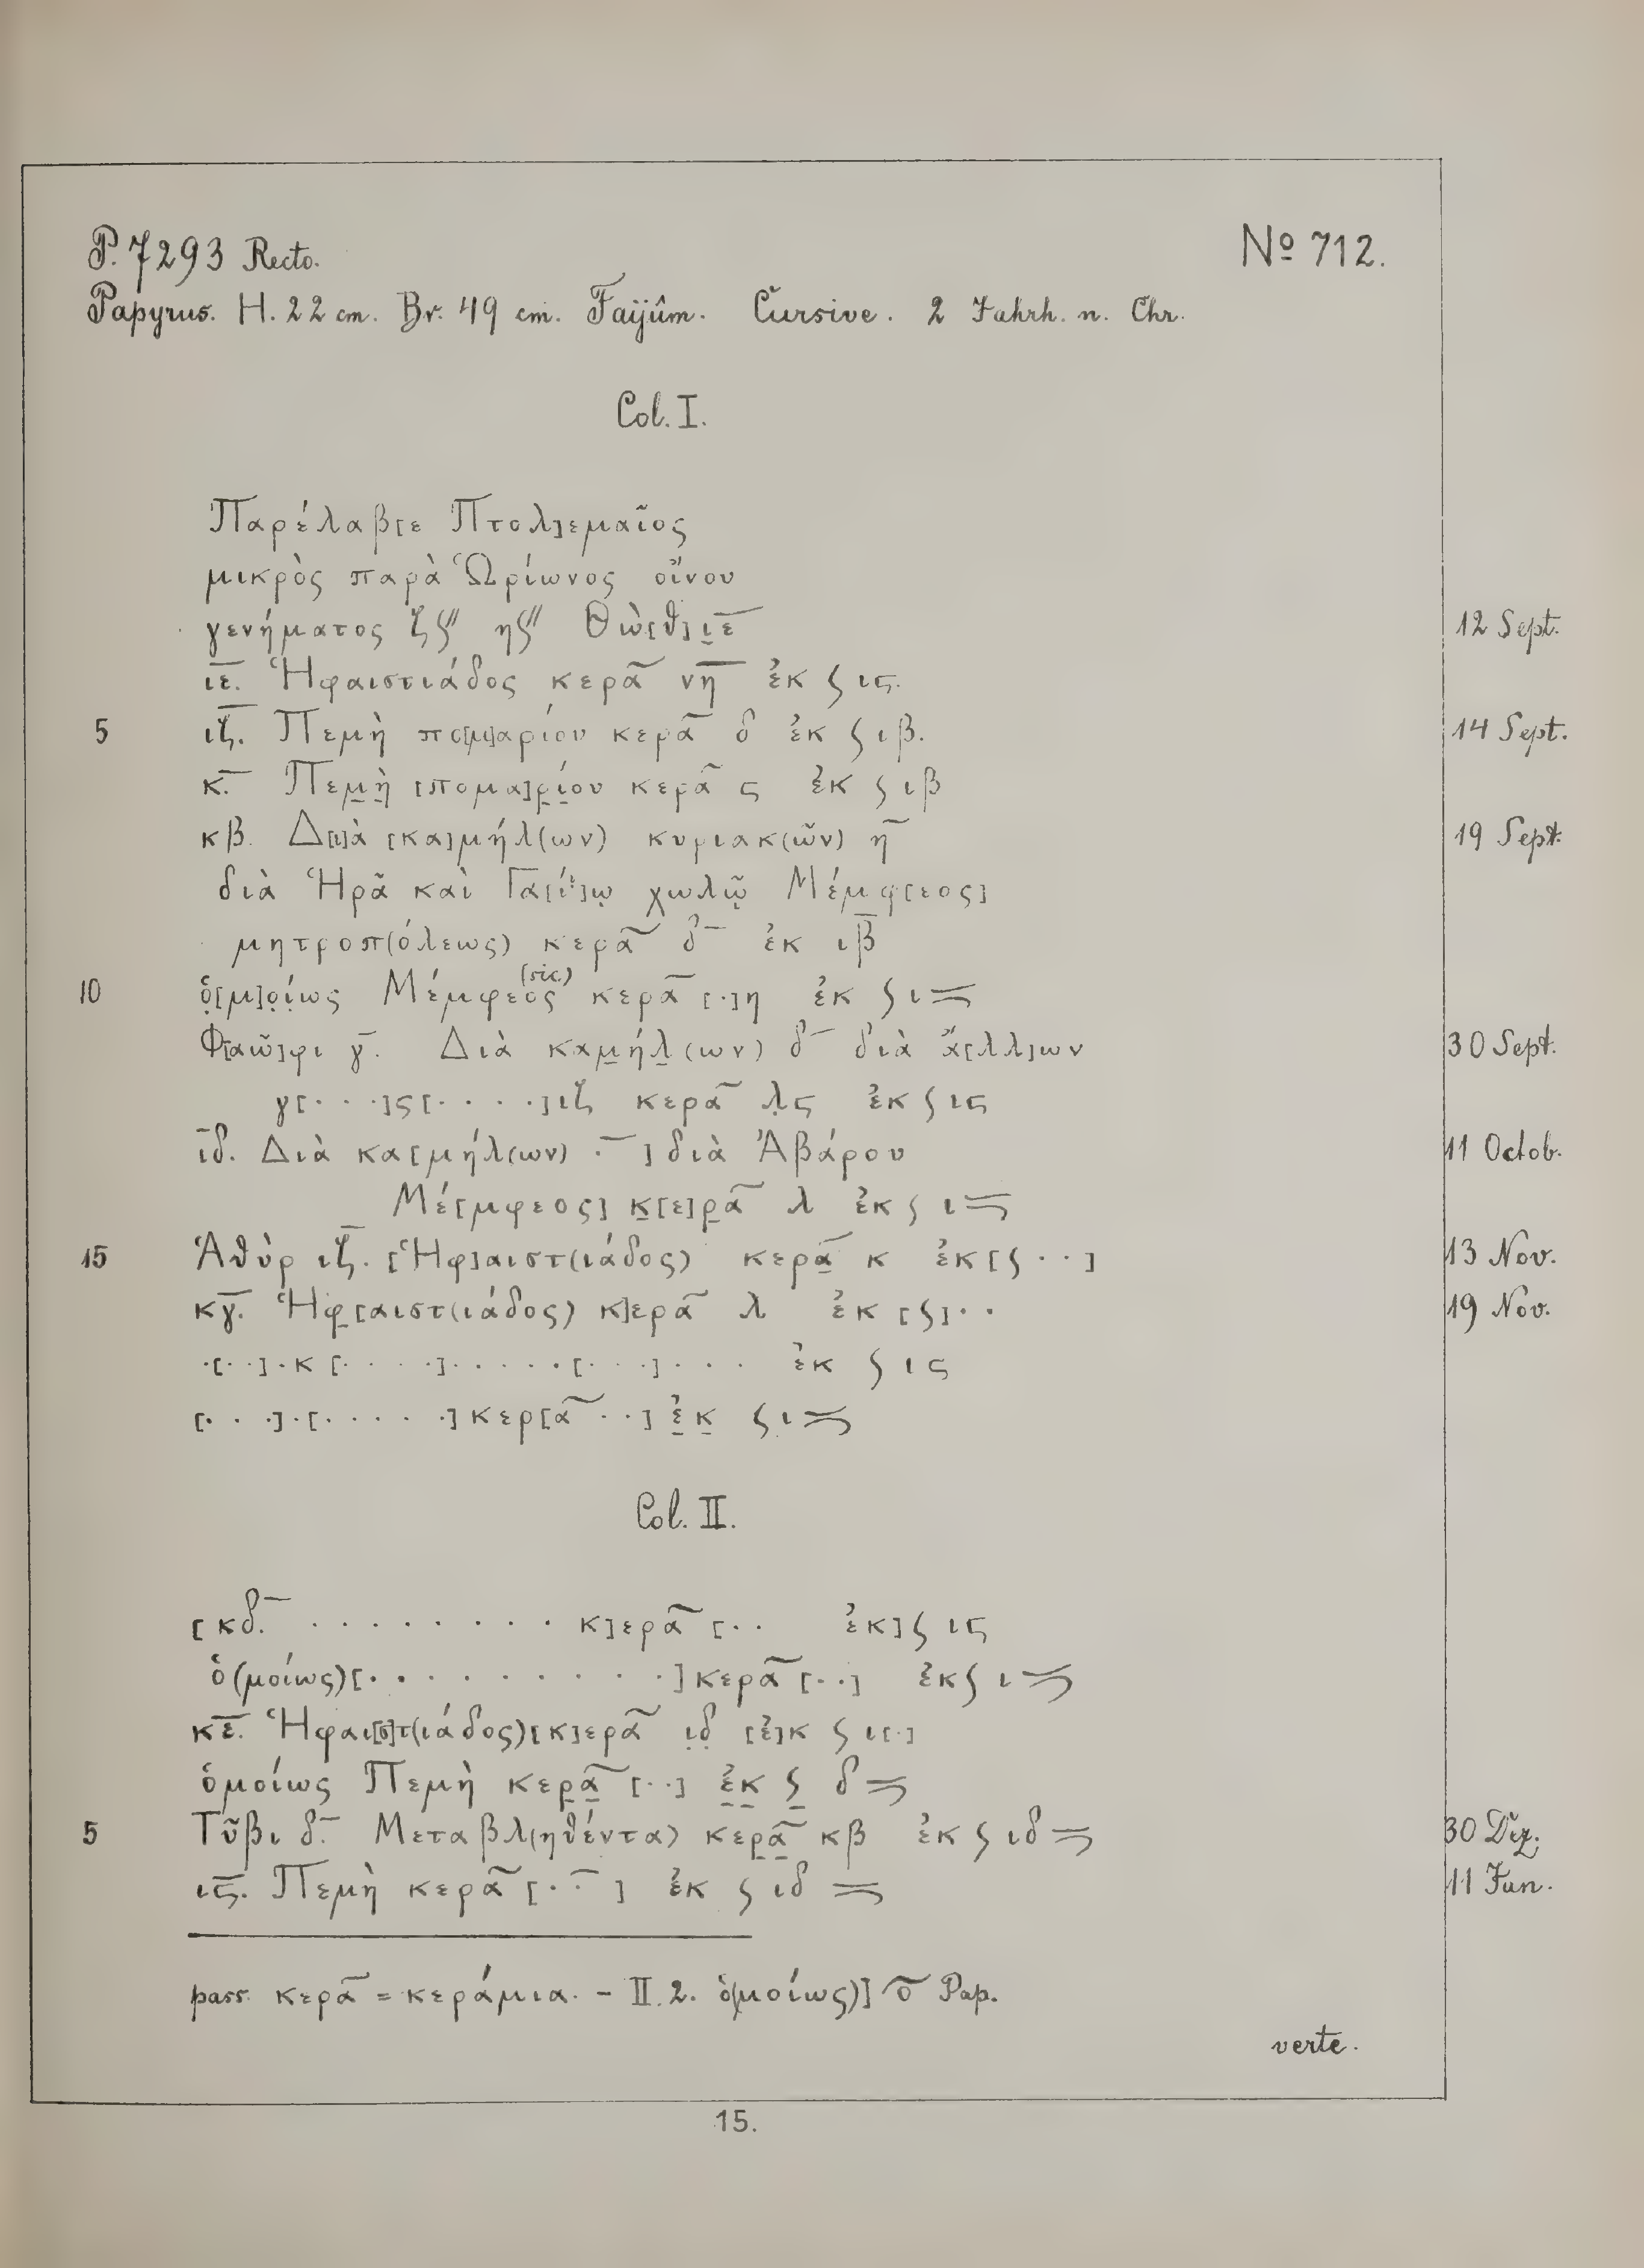 P. 7293 Recto. Nº 712.
Papyrus. H. 22 cm. Br. 49 cm. Faijûm. Cursive. 2 Jahrh. n. Chr.
Col. I.
Παρέλαβ[ε Πτολ]εμαῖος
μικρὸς παρὰ Ὡρίωνος οἴνου
γενήματος ζϛ" ηϛ" Θὼ[θ] ι̣ε̅ 12 Sept.
ι̅ε̅. Ἡφαιστιάδος κερᾶ νη̅ ἐκ ϛ ιϛ.
5 ιζ̅. Πεμὴ πο[μ]αρίου κερᾶ δ ἐκ ϛ ιβ. 14 Sept.
κ̅. Πεμ̣ὴ̣ [πομα]ρ̣ί̣ου κερᾶ ϛ ἐκ ϛ ιβ
κβ. Δ[ι]ὰ [κα]μήλ(ων) κυριακ(ῶν) η̅ 19 Sept.
διὰ Ἡρᾶ καὶ Γα[ί]ῳ χωλῷ Μέμ̣φ[εος]
μητροπ(όλεως) κερᾶ δ̅ ἐκ ιβ̅
10 ὁ̣[μ]ο̣ί̣ως Μέμφεος (sic) κερᾶ [·]η ἐκ ϛ ι=
Φ[αῶ]φι γ̅. Διὰ καμ̣ήλ̣(ων) δ̅ διὰ ἄ[λλ]ων 30 Sept.
γ[· · ·]ς[· · · · ·]ιζ κερᾶ λ̣ϛ ἐκ ϛ ιϛ
ι̅δ. Διὰ κα[μήλ(ων) · ̅ ] διὰ Ἀβάρου 11 Octob.
Μέ[μφεος] κ̣[ε]ρ̣ᾶ λ ἐκ ϛ ι=
15 Ἁθὺρ ιζ̅. [Ἡφ]αιστ(ιάδος) κερᾶ̣ κ ἐκ [ϛ · ·] 13 Nov.
κγ̅. Ἡφ̣[αιστ(ιάδος) κ]ερᾶ λ ἐκ [ϛ] · · 19 Nov.
·[· ·] · κ [· · · · ·] · · · · · [· · · ·] · · · ἐκ ϛ ιϛ
[· · ·] · [· · · · · ·] κερ[ᾶ · ·] ἐ̣κ̣ ϛ ι=
Col. II.
[κδ̅. · · · · · · · · · κ]ερᾶ [· · ἐκ] ϛ ιϛ
ὁ(μοίως) [· · · · · · · · · ·] κερᾶ [· ·] ἐκ ϛ ι=
κε̅. Ἡφαι[σ]τ(ιάδος) [κ]ερᾶ ι̣δ̣ [ἐ]κ ϛ ι[·]
ὁμοίως Πεμὴ κερ̣ᾶ̣ [· ·] ἐ̣κ̣ ϛ̣ δ=
5 Τῦβι δ̅. Μεταβλ(ηθέντα) κερ̣ᾶ̣ κβ ἐκ ϛ ιδ= 30 Dez.
ιϛ̅. Πεμὴ κερᾶ [· · ̅ ] ἐκ ϛ ιδ = 11 Jan.
pass. κερᾶ = κεράμια. – II. 2. ὁ(μοίως)] ο͂ Pap.
verte.
15.